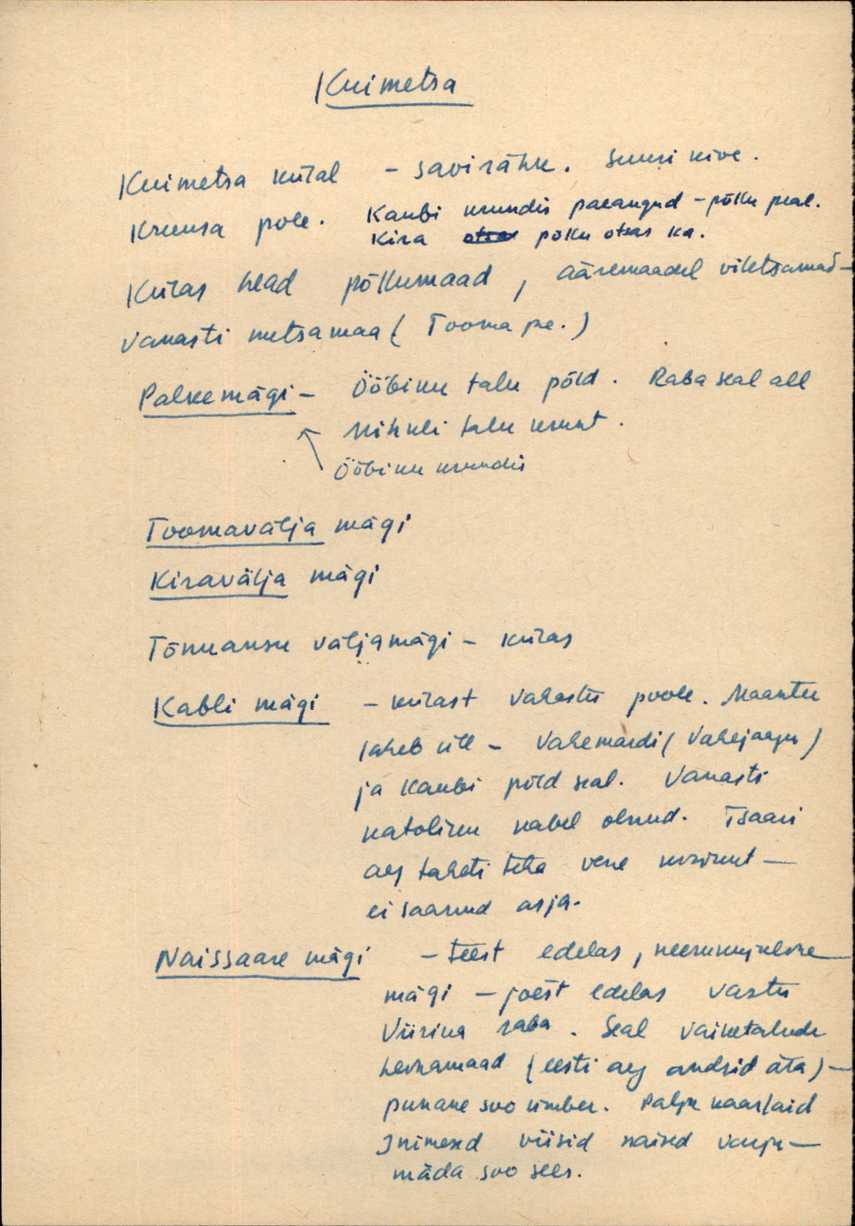 Kuimetsa
Kuimetsa külal - savirähk. Suuri kive.
Kruusa pole. Kaubi krundis paeaugud - põllu peal.
Kira otsas põllu otsas ka.
Külas head põllumaad, ääremaadel viletsamad -
vanasti metsamaa (Tooma pe.)
Palkemägi - Ööbiku talu põld. Raba seal all
Nihuli talu krunt.
Ööbiku krundis
Toomavälja mägi
Kiravälja mägi
Tõnuansu väljamägi - külas
Kabli mägi - külast Vahastu poole. Maantee
läheb üle - Vahemardi (Vahejaagu)
ja Kaubi põld seal. Vanasti
katoliku kabel olnud. Tsaari
aeg taheti teha vene -
ei saanud asja.
Naissaare mägi - Teest edelas,
mägi - jõest edelas vastu
Viirika raba. Seal väiketalude
heinamaad (eesti aeg andsid ära) -
punane soo ümber. Palju kaarlaid
Inimesed viisid naised varju -
mäda soo sees.